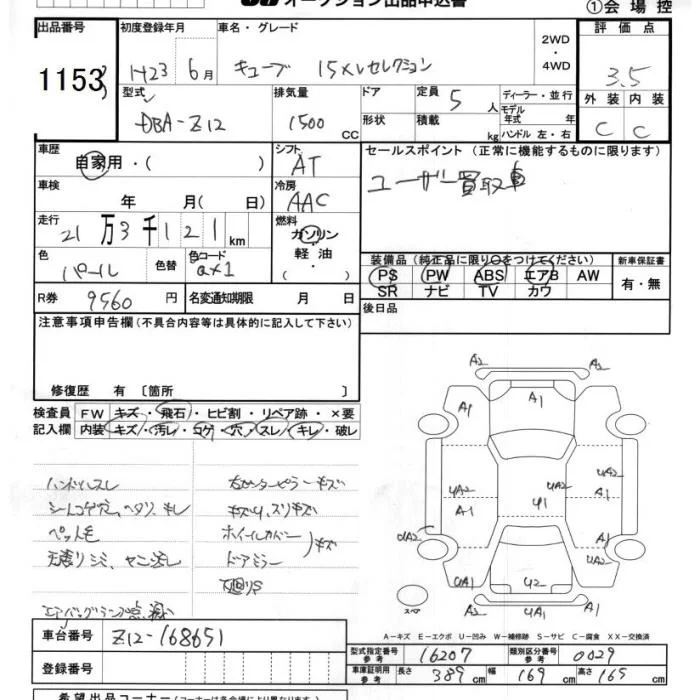 オークション出品申込書
①会場控
出品番号 1153
初度登録年月 H23 6月
車名・グレード キューブ 15XVセレクション
2WD・4WD
評価点 3.5
外装 内装
C C
型式 DBA-Z12
排気量 1500 CC
ドア 形状
定員 5人
積載 kg
ディーラー・並行
モデル年式 年
ハンドル 左・右
車歴 自家用・( )
シフト AT
セールスポイント (正常に機能するものに限ります)
ユーザー買取車
車検 年 月( 日)
冷房 AAC
走行 21万3千121km
燃料 ガソリン 軽油 ( ・ )
色 パール 色替 色コード QX1
装備品 (純正品に限り○をつけてください) 新車保証書
PS PW ABS エアB AW 有・無
SR ナビ TV カワ
R券 9560円 名変通知期限 月 日
後日品
注意事項申告欄 (不具合内容等は具体的に記入して下さい)
修復歴 有 〔箇所 〕
検査員 FW キズ・飛石・ヒビ割・リペア跡・×要
記入欄 内装 キズ・汚レ・コゲ・穴・スレ・キレ・破レ
ハンドルスレ 右センターピラーキズ
シートコゲ穴、ヘタリ、キレ キズU、スリキズ
ペット毛 ホイールカバー キズ
天張りシミ、ヤニ汚レ ドアミラー
下廻りS
エアバッグランプ点滅
A2 A2
A1 A1 A1
UA2 A1 U1 UA2 UA2 A1
UA2 A1
UA1 U2 A1
スペア A2 UA1 A2
A-キズ E-エクボ U-凹み W-補修跡 S-サビ C-腐食 XX-交換済
車台番号 Z12-168651
登録番号
型式指定番号 参考 16207 類別区分番号 参考 0029
車庫証明用 参考 長さ 389cm 幅 169cm 高さ 165cm
希望出品コーナー